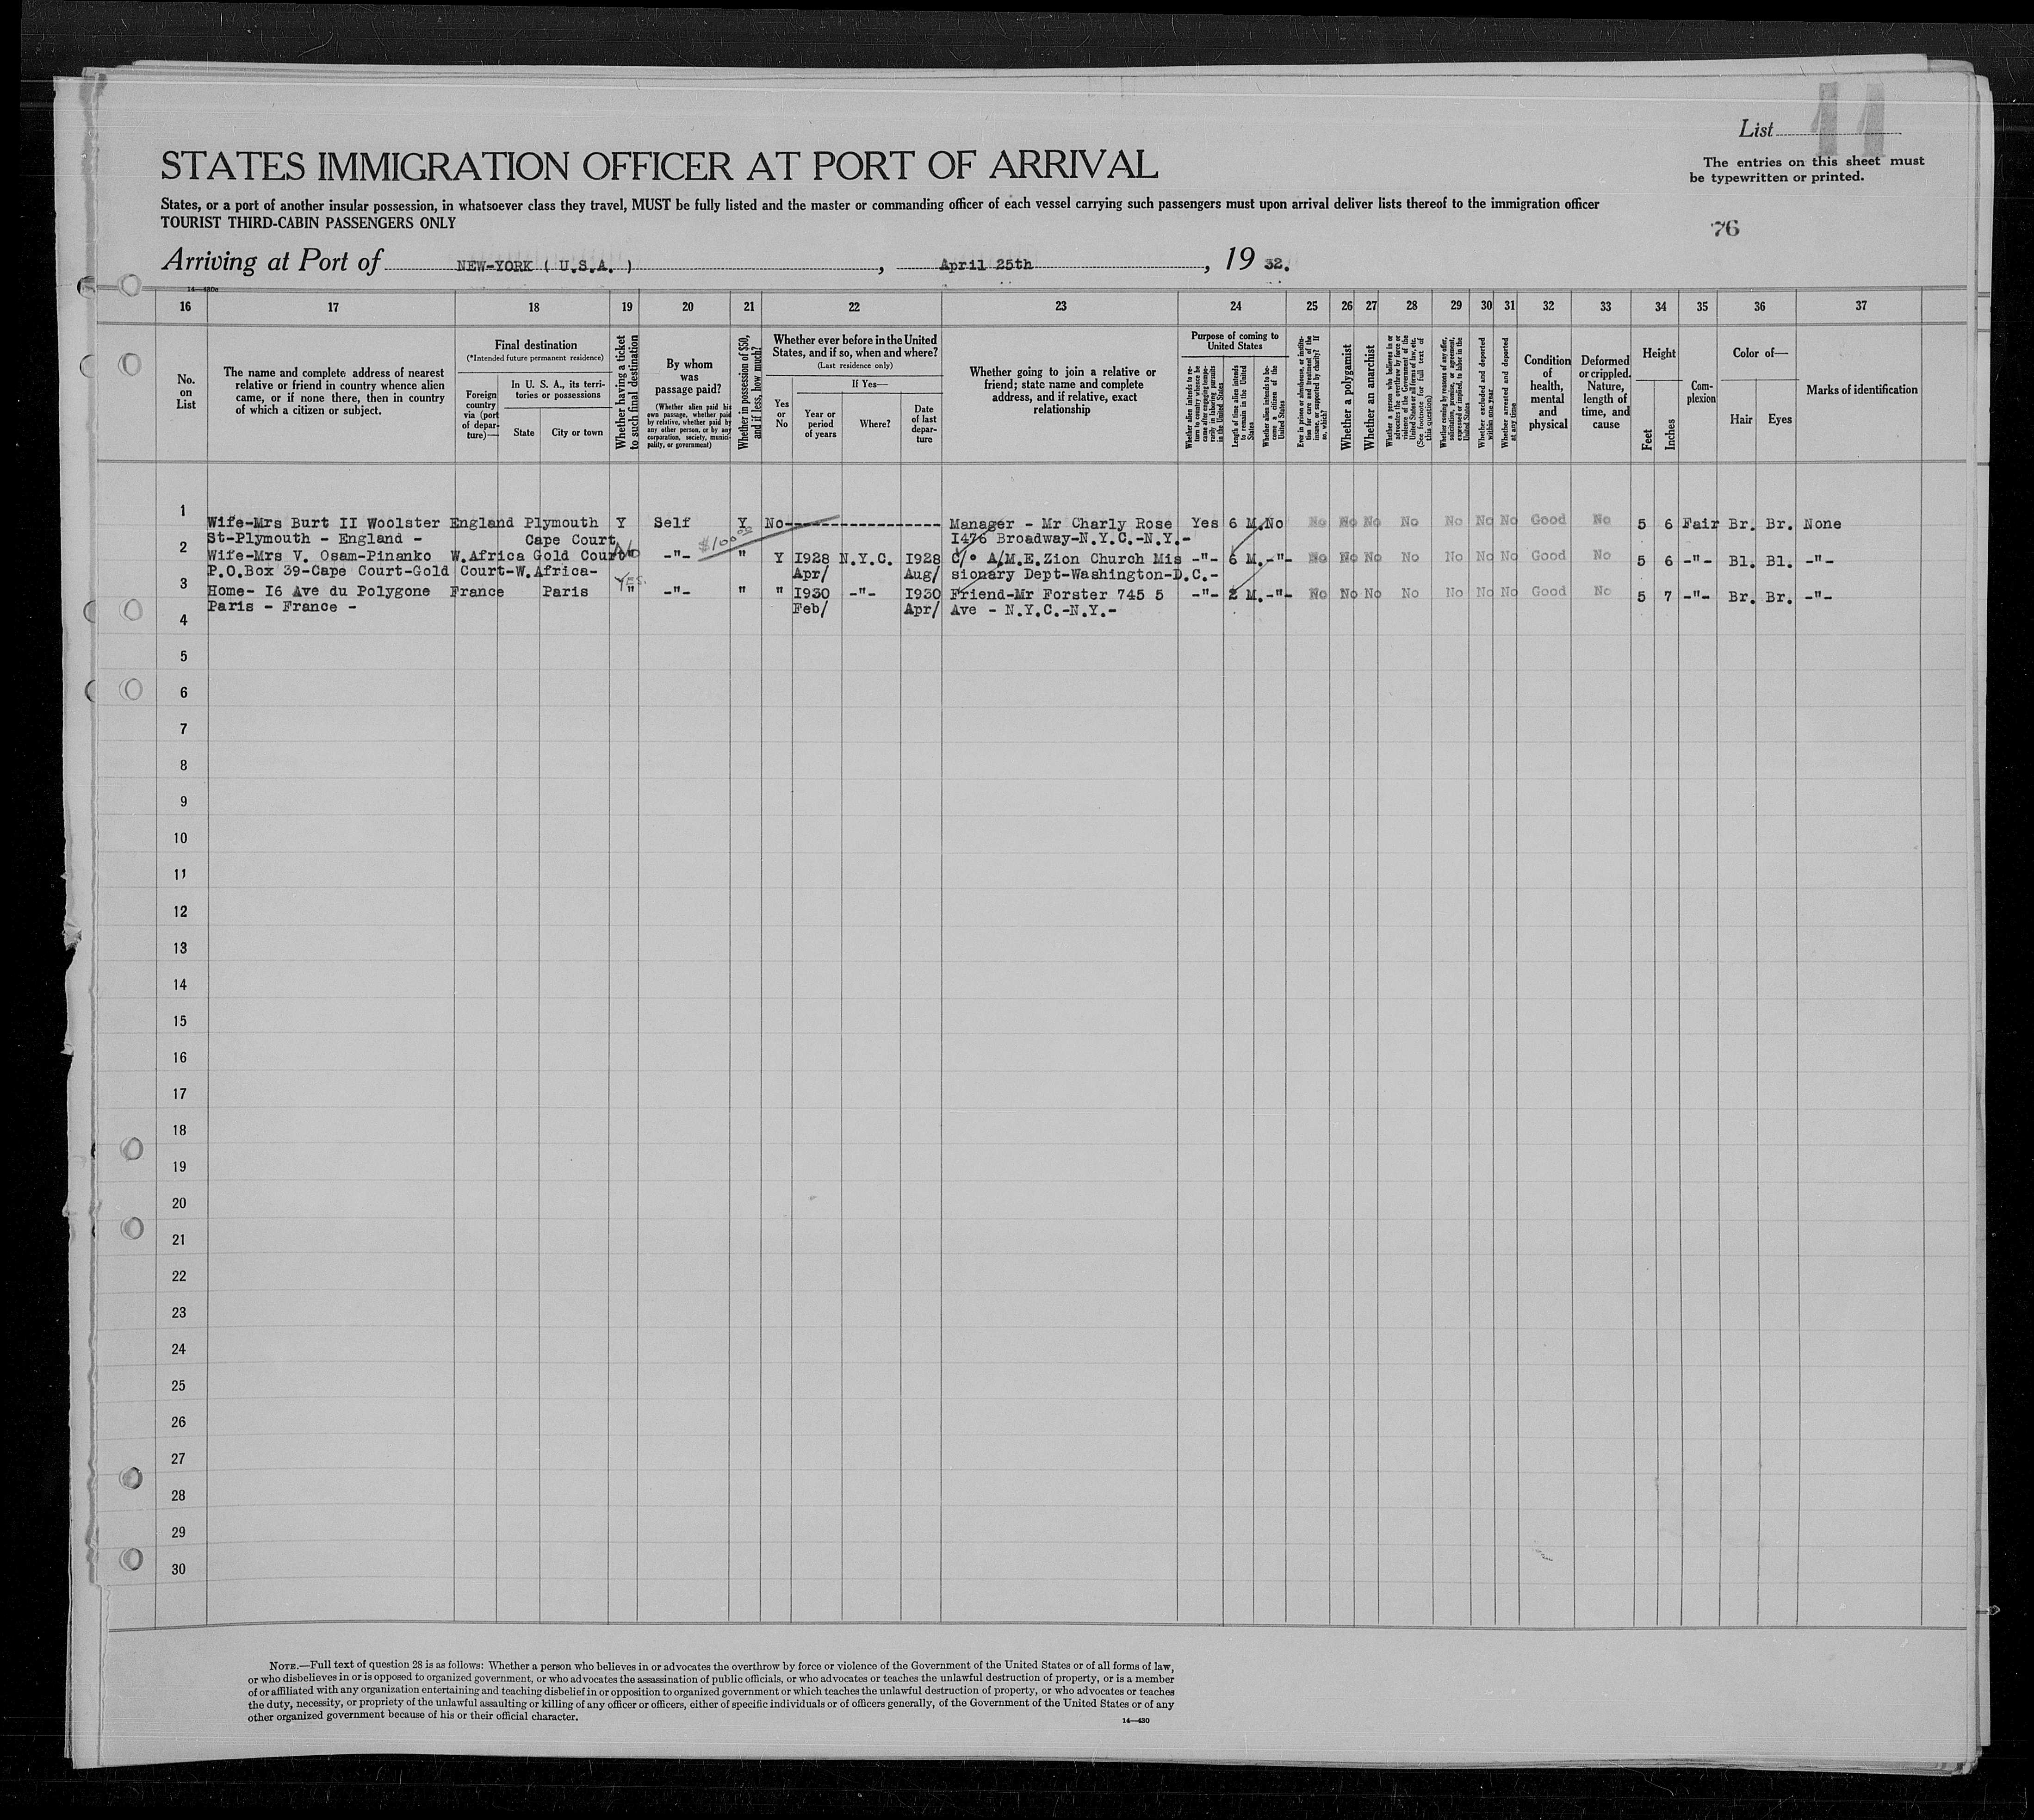 List 11
The entries on this sheet must
be typewritten or printed.
STATES IMMIGRATION OFFICER AT PORT OF ARRIVAL
States, or a port of another insular possession, in whatsoever class they travel, MUST be fully listed and the master or commanding officer of each vessel carrying such passengers must upon arrival deliver lists thereof to the immigration officer
TOURIST THIRD-CABIN PASSENGERS ONLY
76
Arriving at Port of NEW-YORK ( U.S.A. ), April 25th, 19 32.
14—430c
16 17 18 19 20 21 22 23 24 25 26 27 28 29 30 31 32 33 34 35 36 37
No. on List
The name and complete address of nearest
relative or friend in country whence alien
came, or if none there, then in country
of which a citizen or subject.
Final destination
(*Intended future permanent residence)
Foreign country via (port of departure)—
In U. S. A., its territories or possessions
State
City or town
Whether having a ticket to such final destination
By whom was passage paid?
(Whether alien paid his own passage, whether paid by relative, whether paid by any other person, or by any corporation, society, municipality, or government)
Whether in possession of $50, and if less, how much?
Whether ever before in the United States, and if so, when and where?
(Last residence only)
Yes or No
If Yes—
Year or period of years
Where?
Date of last departure
Whether going to join a relative or
friend; state name and complete
address, and if relative, exact
relationship
Purpose of coming to United States
Whether alien intends to return to country whence he came after engaging temporarily in laboring pursuits in the United States
Length of time alien intends to remain in the United States
Whether alien intends to become a citizen of the United States
Ever in prison or almshouse, or institution for care and treatment of the insane, or supported by charity? If so, which?
Whether a polygamist
Whether an anarchist
Whether a person who believes in or advocates the overthrow by force or violence of the Government of the United States or all forms of law, etc. (See footnote for full text of this question)
Whether coming by reasons of any offer, solicitation, promise, or agreement, expressed or implied, to labor in the United States
Whether excluded and deported within one year
Whether arrested and deported at any time
Condition of health, mental and physical
Deformed or crippled. Nature, length of time, and cause
Height
Feet
Inches
Complexion
Color of—
Hair
Eyes
Marks of identification
1 Wife-Mrs Burt II Woolster England Plymouth Y Self Y No------------------ Manager - Mr Charly Rose Yes 6 M. No No No No No No No No Good No 5 6 Fair Br. Br. None
St-Plymouth - England - Cape Court I476 Broadway-N.Y.C.-N.Y.-
$100.00
2 Wife-Mrs V. Osam-Pinanko W.Africa Gold Court No -"- " Y I928 N.Y.C. I928 C/o A/M.E.Zion Church Mis -"- 6 M. -"- No No No No No No No Good No 5 6 -"- Bl. Bl. -"-
P.O.Box 39-Cape Court-Gold Court-W.Africa- Apr/ Aug/ sionary Dept-Washington-D.C.-
Yes.
3 Home- I6 Ave du Polygone France Paris " -"- " " I930 -"- I930 Friend-Mr Forster 745 5 -"- 2 M. -"- No No No No No No No Good No 5 7 -"- Br. Br. -"-
Paris - France - Feb/ Apr/ Ave - N.Y.C.-N.Y.-
4
5
6
7
8
9
10
11
12
13
14
15
16
17
18
19
20
21
22
23
24
25
26
27
28
29
30
NOTE.—Full text of question 28 is as follows: Whether a person who believes in or advocates the overthrow by force or violence of the Government of the United States or of all forms of law,
or who disbelieves in or is opposed to organized government, or who advocates the assassination of public officials, or who advocates or teaches the unlawful destruction of property, or is a member
of or affiliated with any organization entertaining and teaching disbelief in or opposition to organized government or which teaches the unlawful destruction of property, or who advocates or teaches
the duty, necessity, or propriety of the unlawful assaulting or killing of any officer or officers, either of specific individuals or of officers generally, of the Government of the United States or of any
other organized government because of his or their official character.
14—430